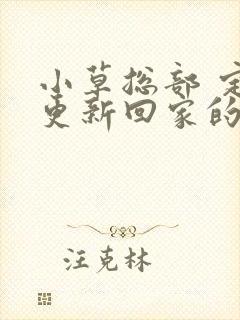 小草总部
更新回家的
汪克林